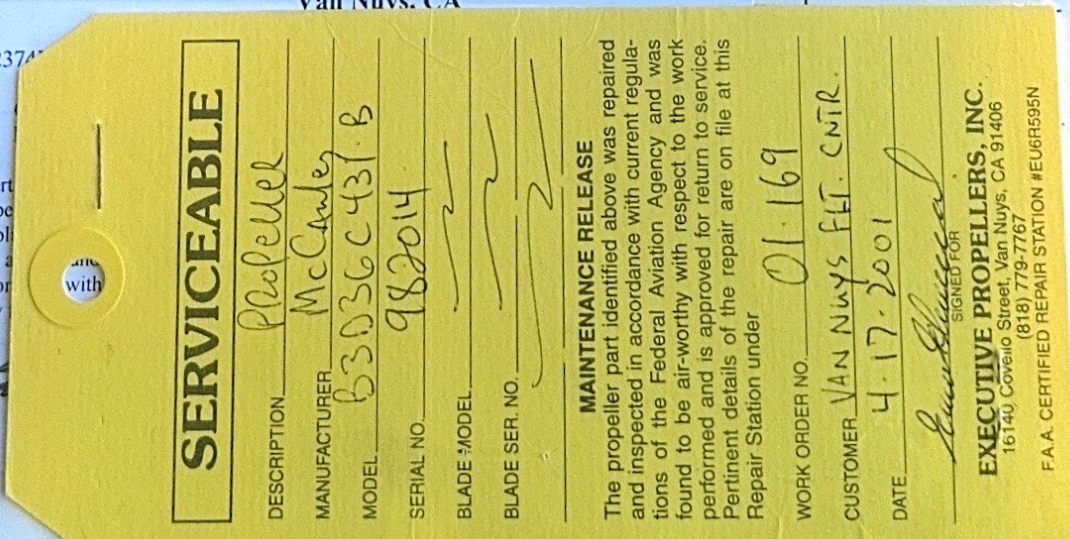 Van Nuys, CA
with
SERVICEABLE
DESCRIPTION Propeller
MANUFACTURER McCauley
MODEL B3D36C431.B
SERIAL NO. 982014
BLADE MODEL
BLADE SER. NO.
MAINTENANCE RELEASE
The propeller part identified above was repaired
and inspected in accordance with current regula-
tions of the Federal Aviation Agency and was
found to be air-worthy with respect to the work
performed and is approved for return to service.
Pertinent details of the repair are on file at this
Repair Station under
WORK ORDER NO. 01.169
CUSTOMER VAN NUYS FLT. CNTR.
DATE 4.17.2001
SIGNED FOR
EXECUTIVE PROPELLERS, INC.
16140 Covello Street, Van Nuys, CA 91406
(818) 779-7767
F.A.A. CERTIFIED REPAIR STATION #EU6R595N